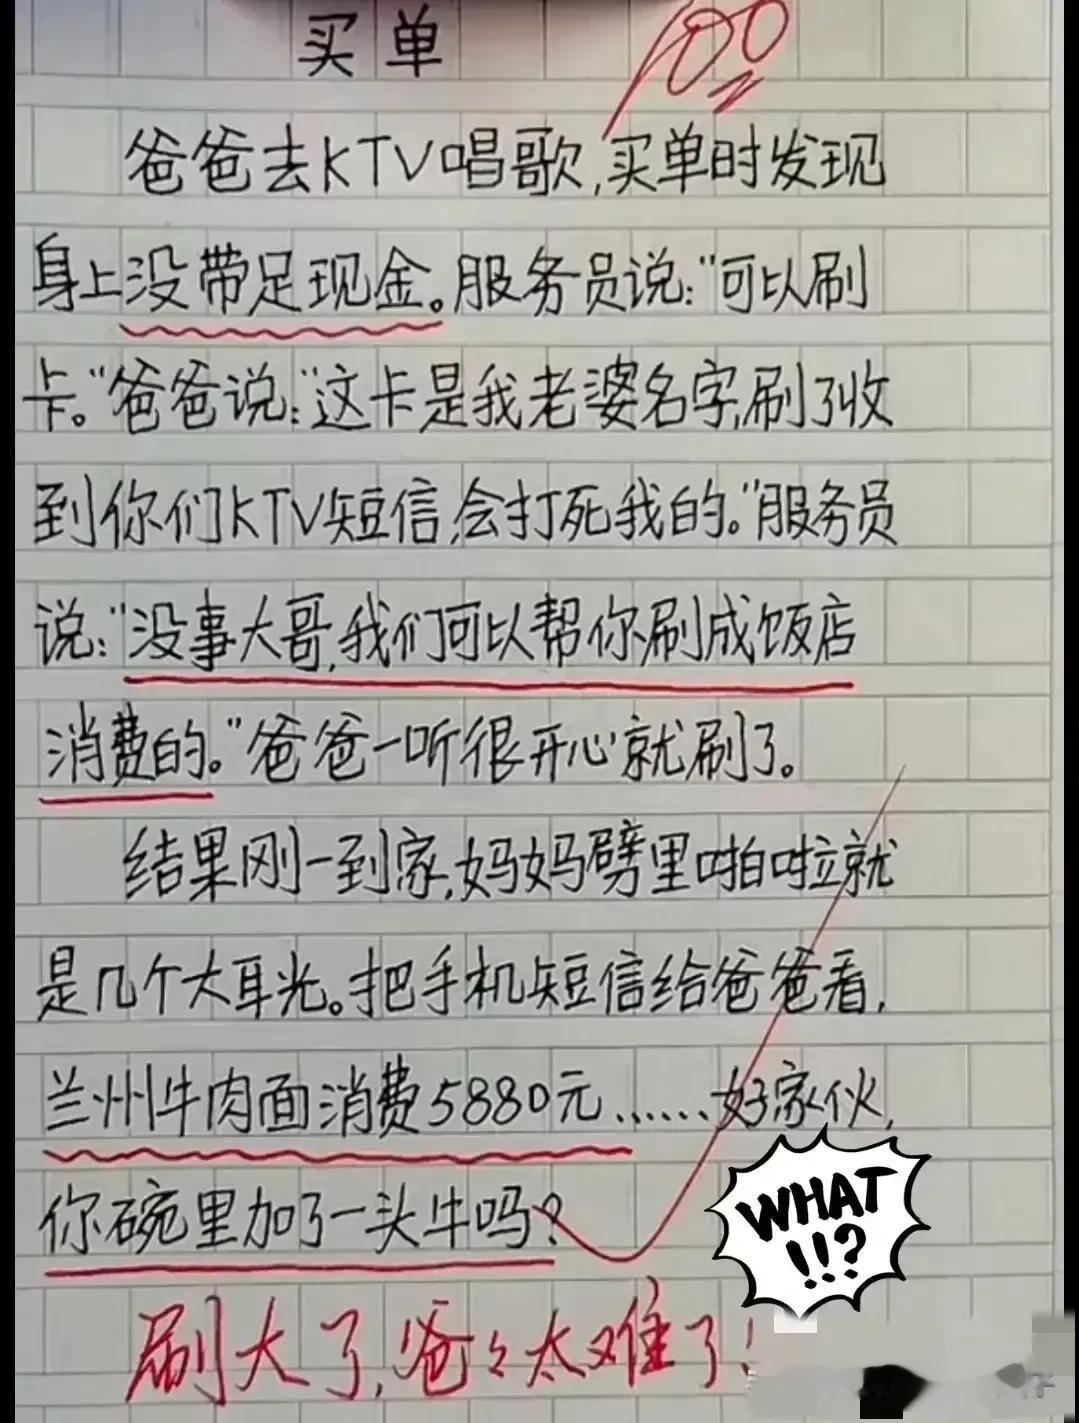 买单
100
爸爸去KTV唱歌,买单时发现
身上没带足现金。服务员说:"可以刷
卡。"爸爸说:"这卡是我老婆名字,刷了收
到你们KTV短信,会打死我的。"服务员
说:"没事大哥,我们可以帮你刷成饭店
消费的。"爸爸一听很开心就刷了。
结果刚一到家,妈妈劈里啪啦就
是几个大耳光。把手机短信给爸爸看,
兰州牛肉面消费5880元......好家伙,
你碗里加了一头牛吗?
WHAT
!!?
刷大了,爸々太难了!